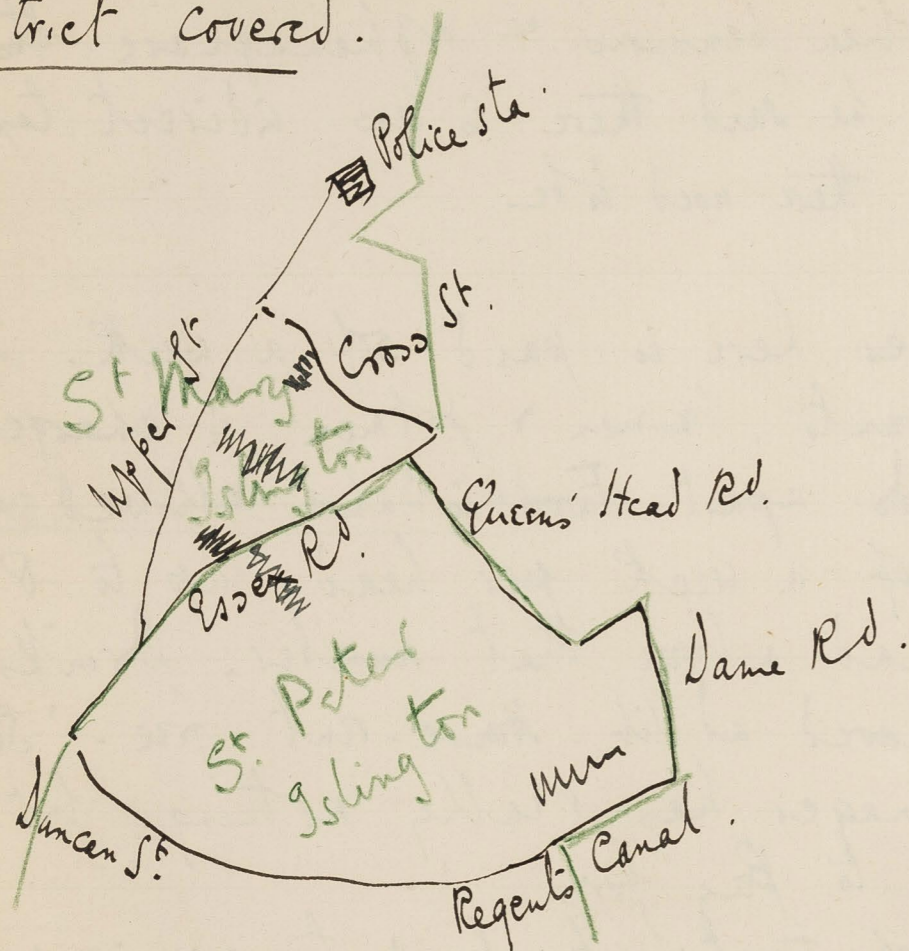 trict covered.
Police Sta.
Cross St.
Upper St
St Mary
Islington
Queens' Head Rd.
Essex Rd.
Dame Rd.
St. Peter
Islington
Duncan St.
Regents Canal.